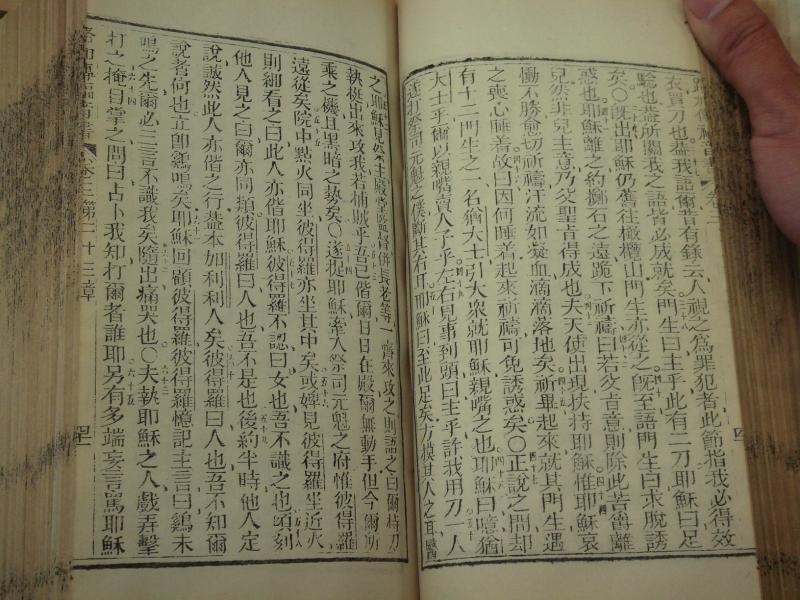 衣買刀也蓋我語爾昔有錄云人視之爲罪犯者此節指我必得效
驗也蓋所關我之語皆必成就矣門生曰主乎此有二刀耶穌曰足
矣〇旣出耶穌仍舊往橄欖山門生亦從之旣至語門生曰求脫誘
惑也耶穌離之約擲石之遠跪下祈禱曰若父肯意則除此苦嘗離
兒然非兒主意乃父聖肯得成也夫天使出現扶持耶穌惟耶穌哀
慟不勝愈切祈禱汗流如凝血滴滴落地矣祈畢起來就其門生遇
之喪心睡着故曰因何睡着起來祈禱可免誘惑矣〇正說之間却
有十二門生之一名猶大士引大衆就耶穌親嘴之也耶穌曰噫猶
大士乎爾以親嘴賣人子乎左右見事到頭曰主乎許我用刀一人
遂打祭司元魁之僕斷其右耳耶穌曰至此足矣方模其人之耳醫
之耶穌見祭主殿堂監督併長老等一齊來攻之則語之曰爾持刀
執挺出來攻我若捕賊乎吾已偕爾日日在殿爾無動手但今爾所
乘之機且黑暗之勢矣〇遂捉耶穌牽入祭司元魁之府惟彼得羅
遠從矣院中點火同坐彼得羅亦坐其中矣或婢見彼得羅坐近火
則細看之曰此人亦偕耶穌彼得羅不認曰女也吾不識之也頃刻
他人見之曰爾亦同類彼得羅曰人也吾不是也後約半時他人定
說誠然此人亦偕之行蓋本加利利人矣彼得羅曰人也吾不知爾
說者何也立卽鷄鳴矣耶穌回顧彼得羅彼得羅憶記主言曰鷄未
鳴之先爾必三言不識我矣隨出痛哭也〇夫執耶穌之人戲弄擊
打之掩目掌之問曰占卜我知打爾者誰耶另有多端妄言罵耶穌
卷三第二十三章